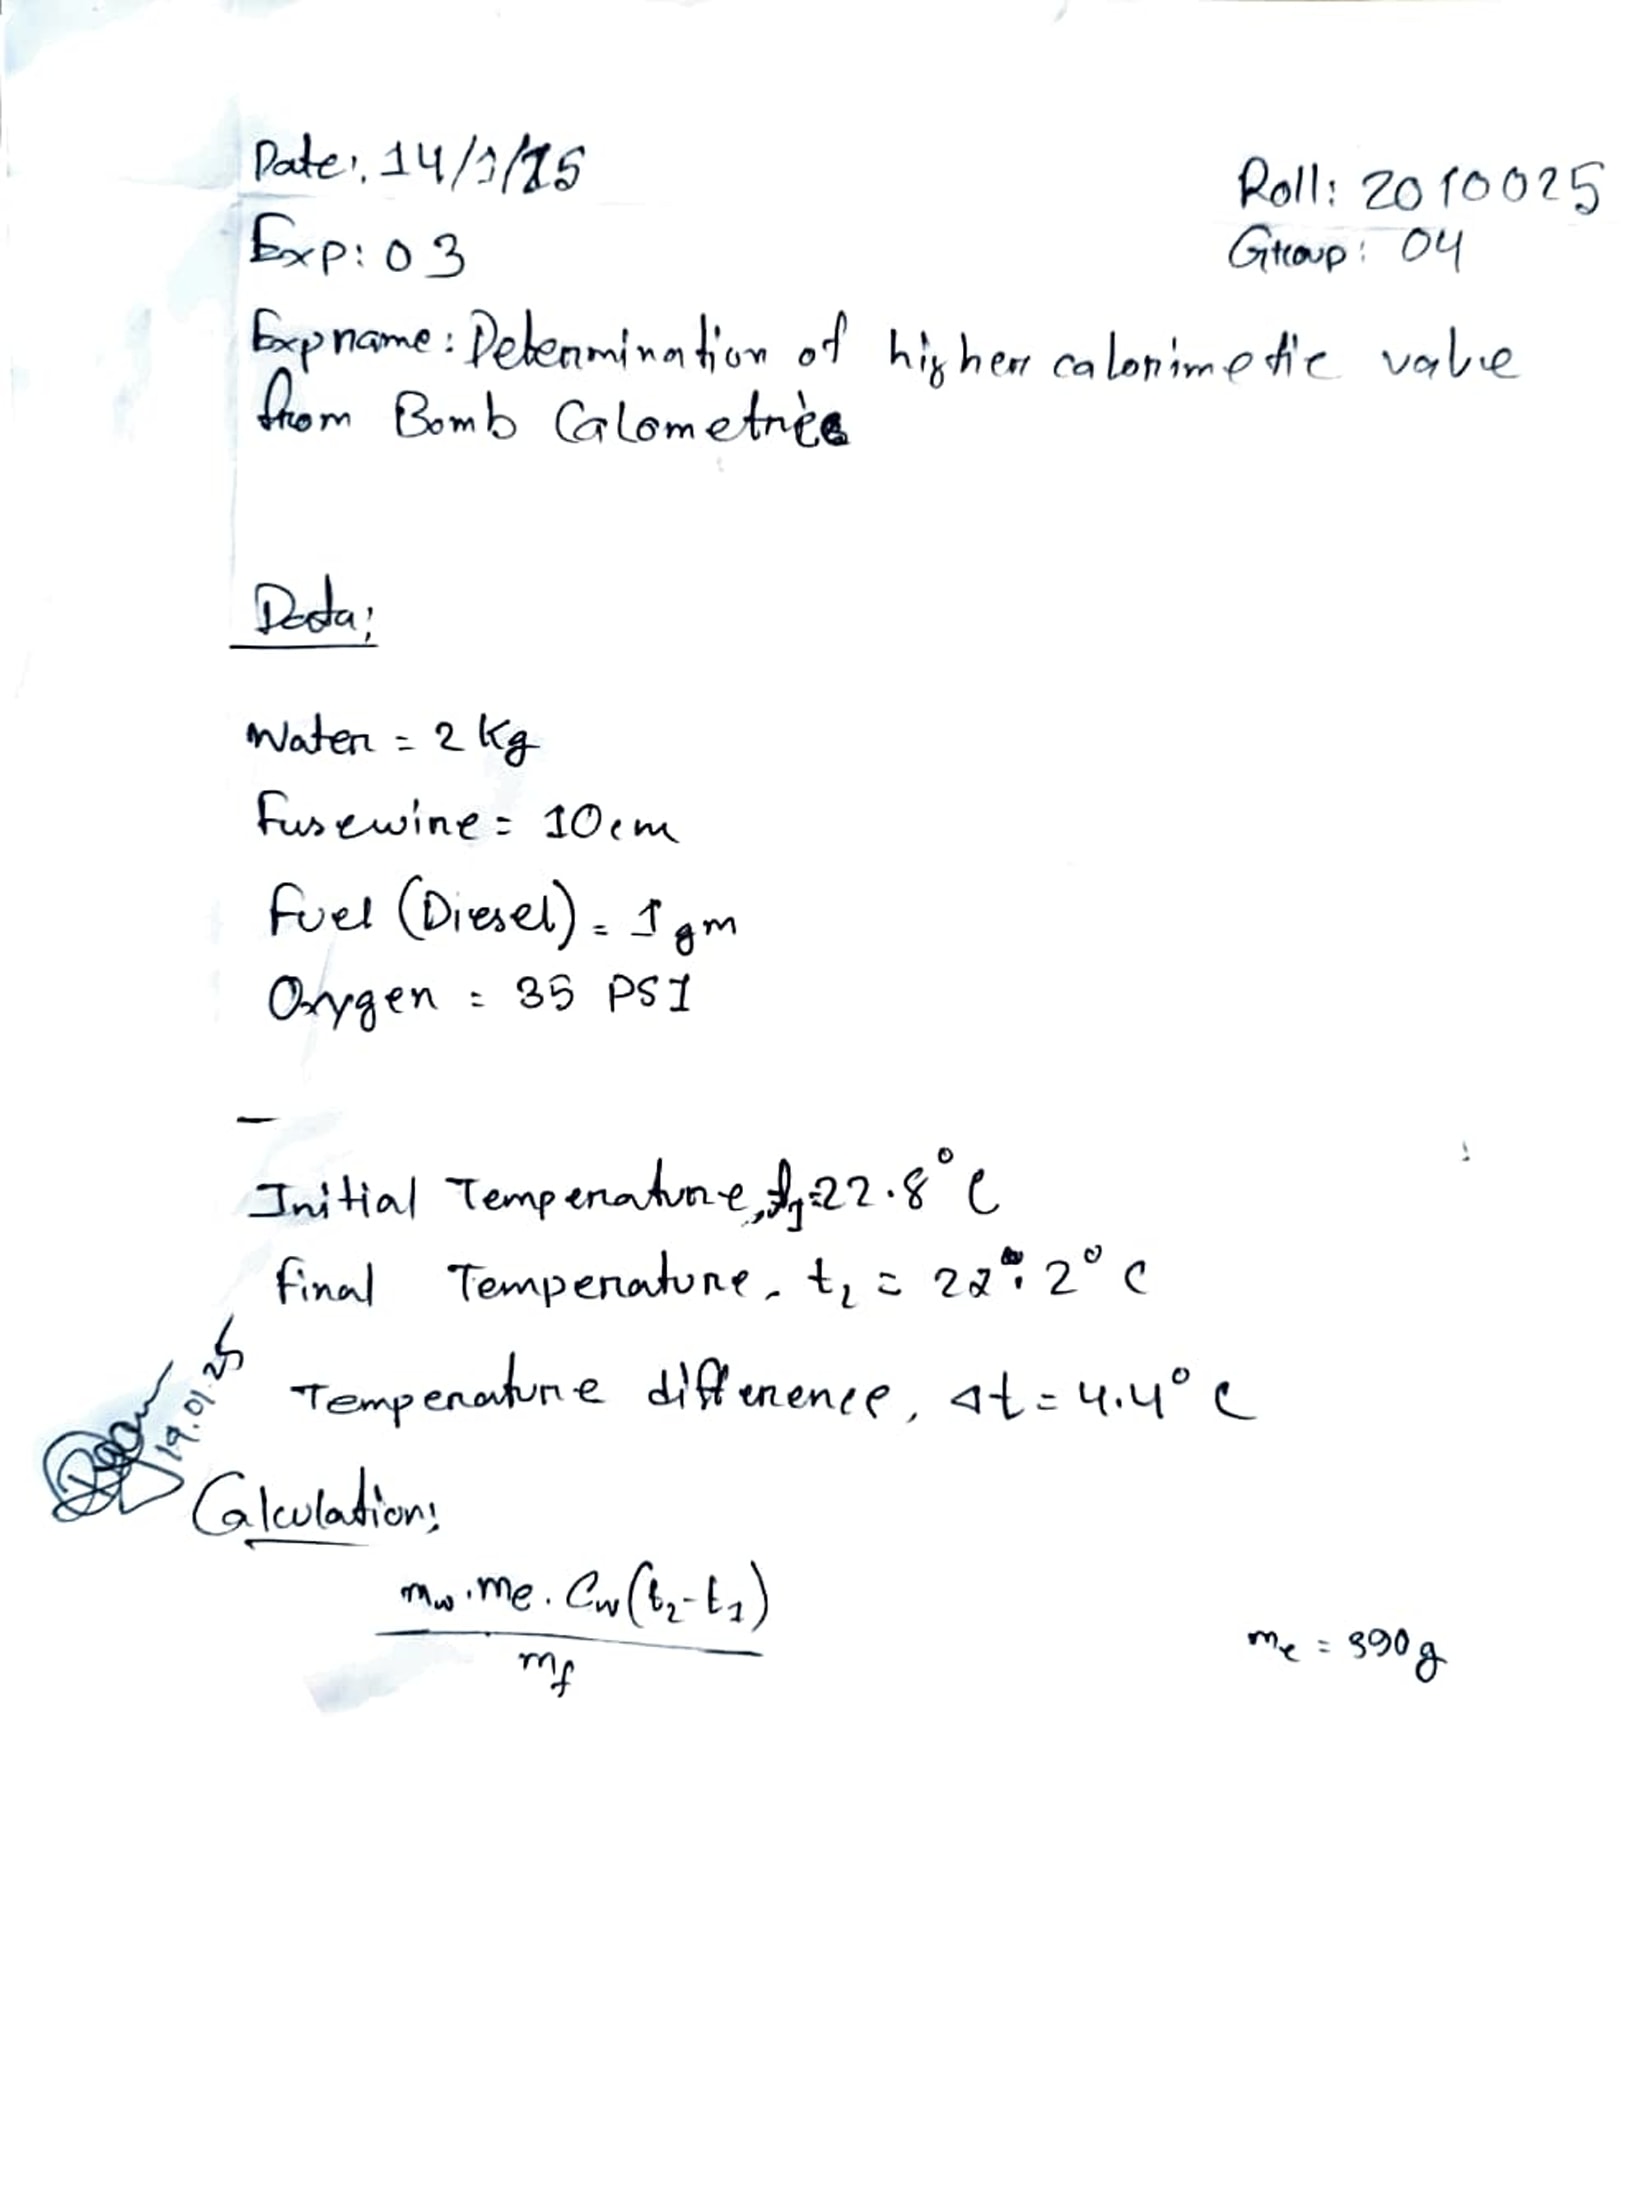 Date: 14/1/25
Roll: 2010025
Exp: 03
Group: 04
Exp name: Determination of higher calorimetic value
from Bomb Calometric
Data:
Water = 2 Kg
Fusewire = 10cm
Fuel (Diesel) = 1 gm
Oxygen = 35 PSI
Initial Temperature, t1=22.8°C
Final Temperature, t2 = 27.2°C
Temperature difference, Δt = 4.4°C
19.01.25
Calculation:
mw.me.Cw(t2-t1)
mf
me = 390g